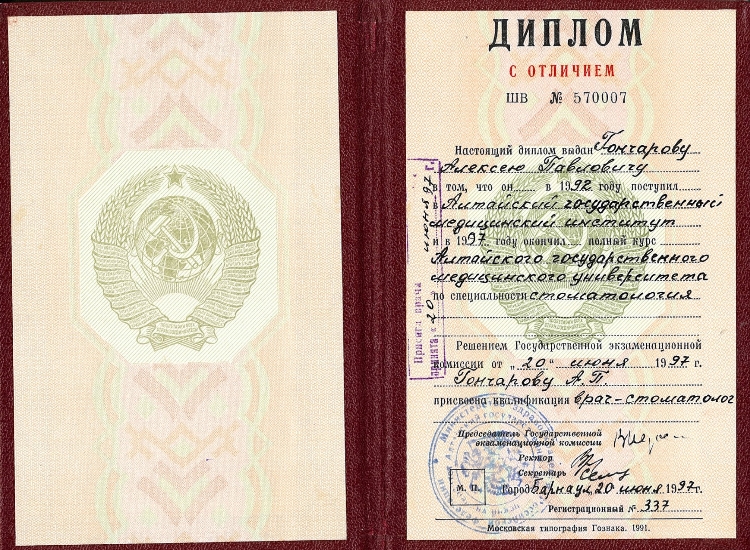 ДИПЛОМ
С ОТЛИЧИЕМ
ШВ № 570007
Настоящий диплом выдан Гончарову
Алексею Павловичу
в том, что он в 1992 году поступил
в Алтайский государственный
медицинский институт
и в 1997 году окончил полный курс
Алтайского государственного
медицинского университета
по специальности стоматология
Решением Государственной экзаменационной
комиссии от „20“ июня 1997 г.
Гончарову А.П.
присвоена квалификация врач-стоматолог
Председатель Государственной
экзаменационной комиссии
Ректор
Секретарь
М. П.
Город Барнаул 20 июня 1997 г.
Регистрационный № 337
Московская типография Гознака. 1991.
Присяга врача
принята „20“ июня 97 г.